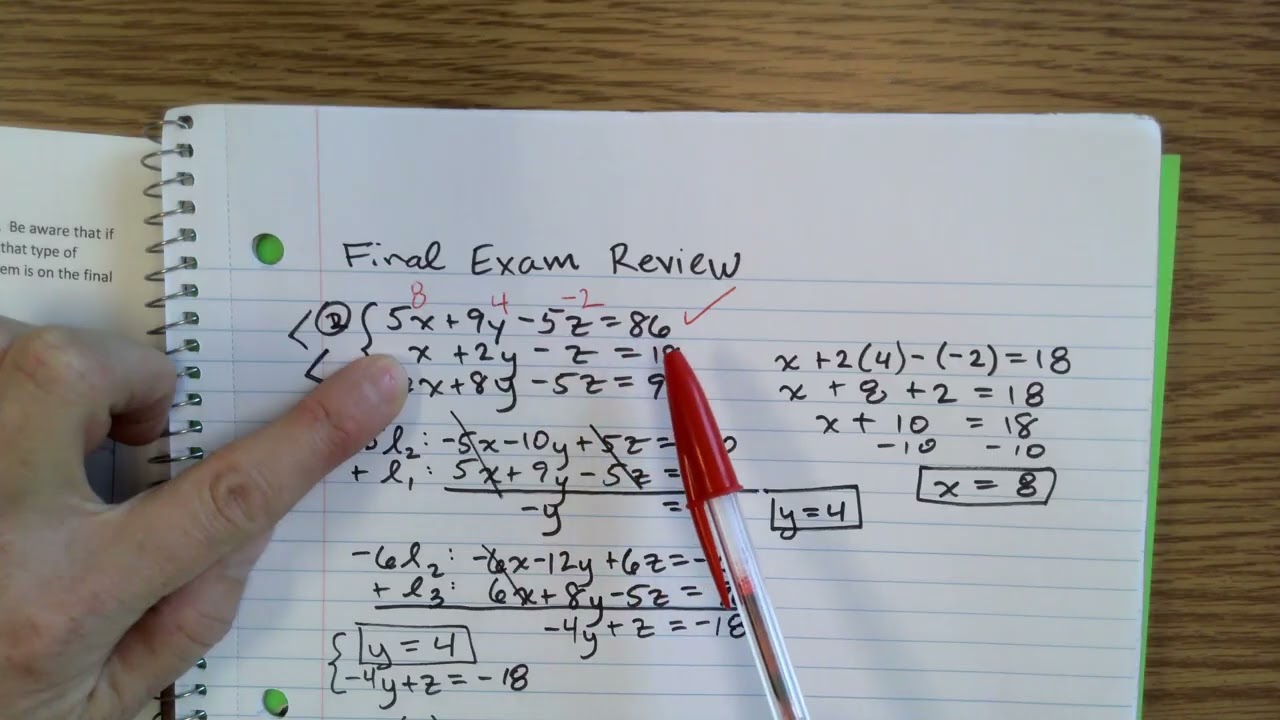 Be aware that if
that type of
em is on the final
Final Exam Review
8 4 -2
② { 5x + 9y - 5z = 86 ✓
x + 2y - z = 18
x + 8y - 5z = 9
l₂: -5x - 10y + 5z =
+ l₁: 5x + 9y - 5z =
-y =
y = 4
-6l₂: -6x - 12y + 6z = -
+ l₃: 6x + 8y - 5z =
-4y + z = -18
{ y = 4
-4y + z = -18
x + 2(4) - (-2) = 18
x + 8 + 2 = 18
x + 10 = 18
-10 -10
x = 8